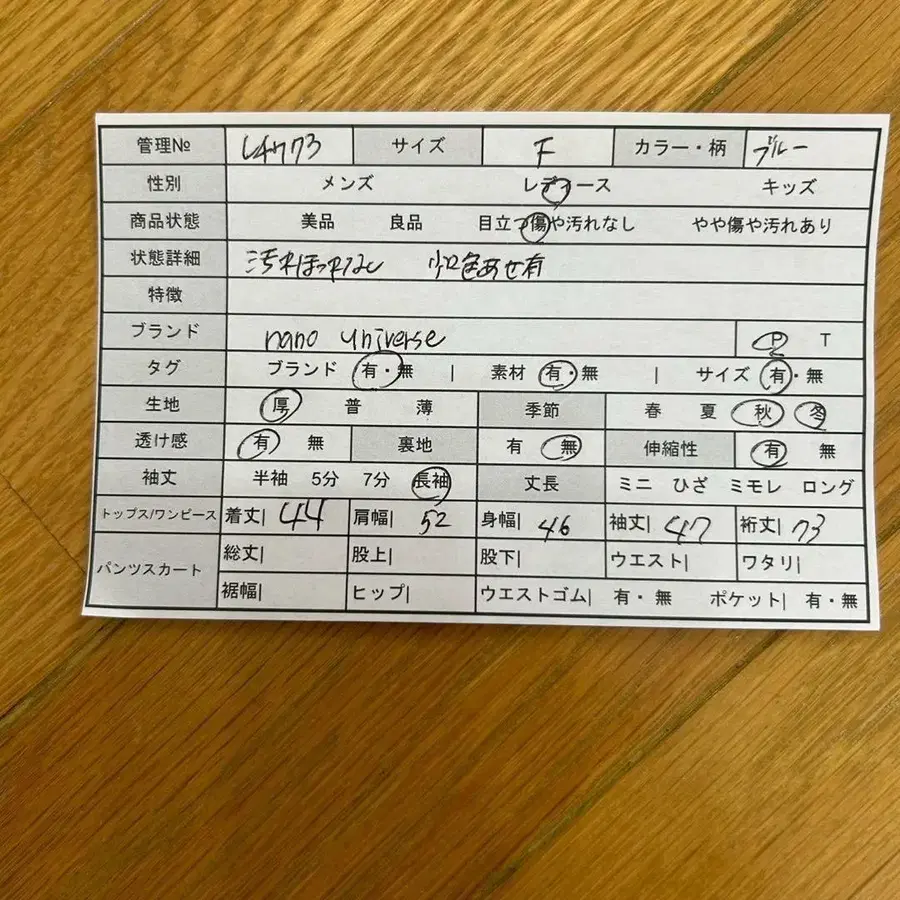 管理№ L4773 サイズ F カラー・柄 ブルー
性別 メンズ レディース キッズ
商品状態 美品 良品 目立つ傷や汚れなし やや傷や汚れあり
状態詳細 汚れほつれなし 少し色あせ有
特徴
ブランド nano universe P T
タグ ブランド 有・無 | 素材 有・無 | サイズ 有・無
生地 厚 普 薄 季節 春 夏 秋 冬
透け感 有 無 裏地 有 無 伸縮性 有 無
袖丈 半袖 5分 7分 長袖 丈長 ミニ ひざ ミモレ ロング
トップス/ワンピース 着丈| 44 肩幅| 52 身幅| 46 袖丈| 47 裄丈| 73
パンツスカート 総丈| 股上| 股下| ウエスト| ワタリ|
裾幅| ヒップ| ウエストゴム| 有・無 ポケット| 有・無